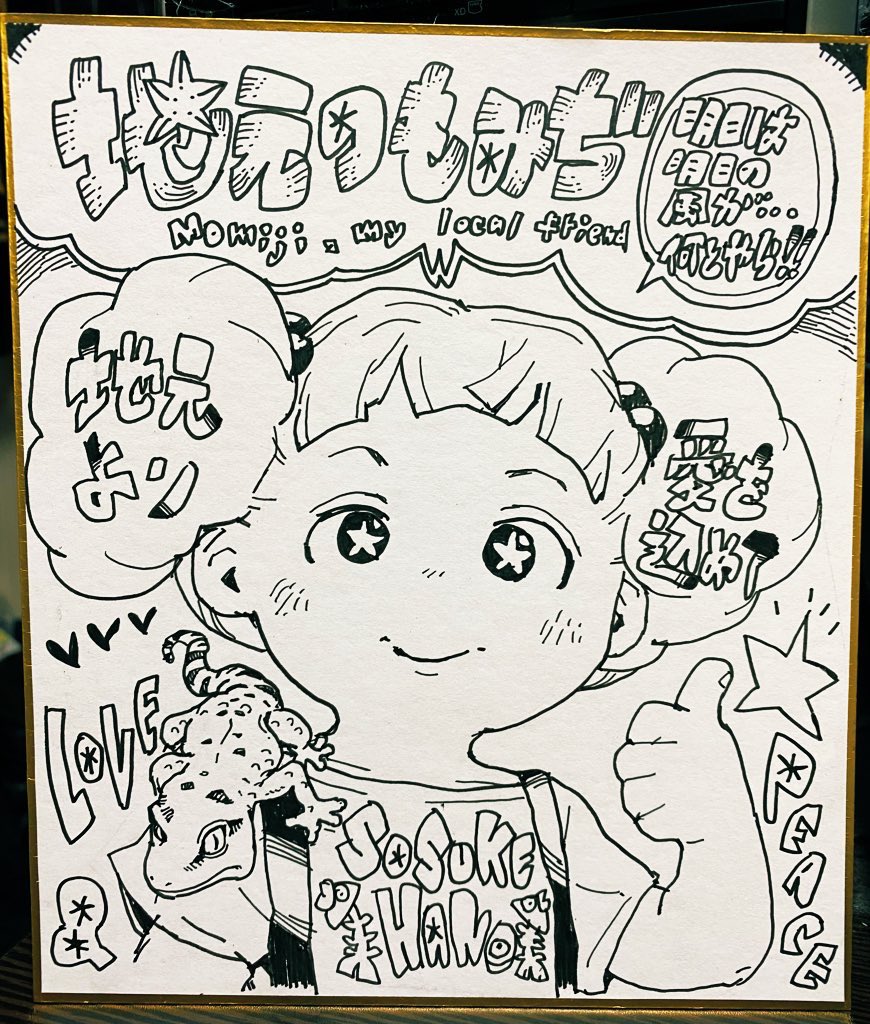 地元のもみぢ
Momiji, my local friend
明日は
明日の
風が...
何とやら!!
地元
より
愛を
込めて
LOVE
&
PEACE
SOSUKE
HANO